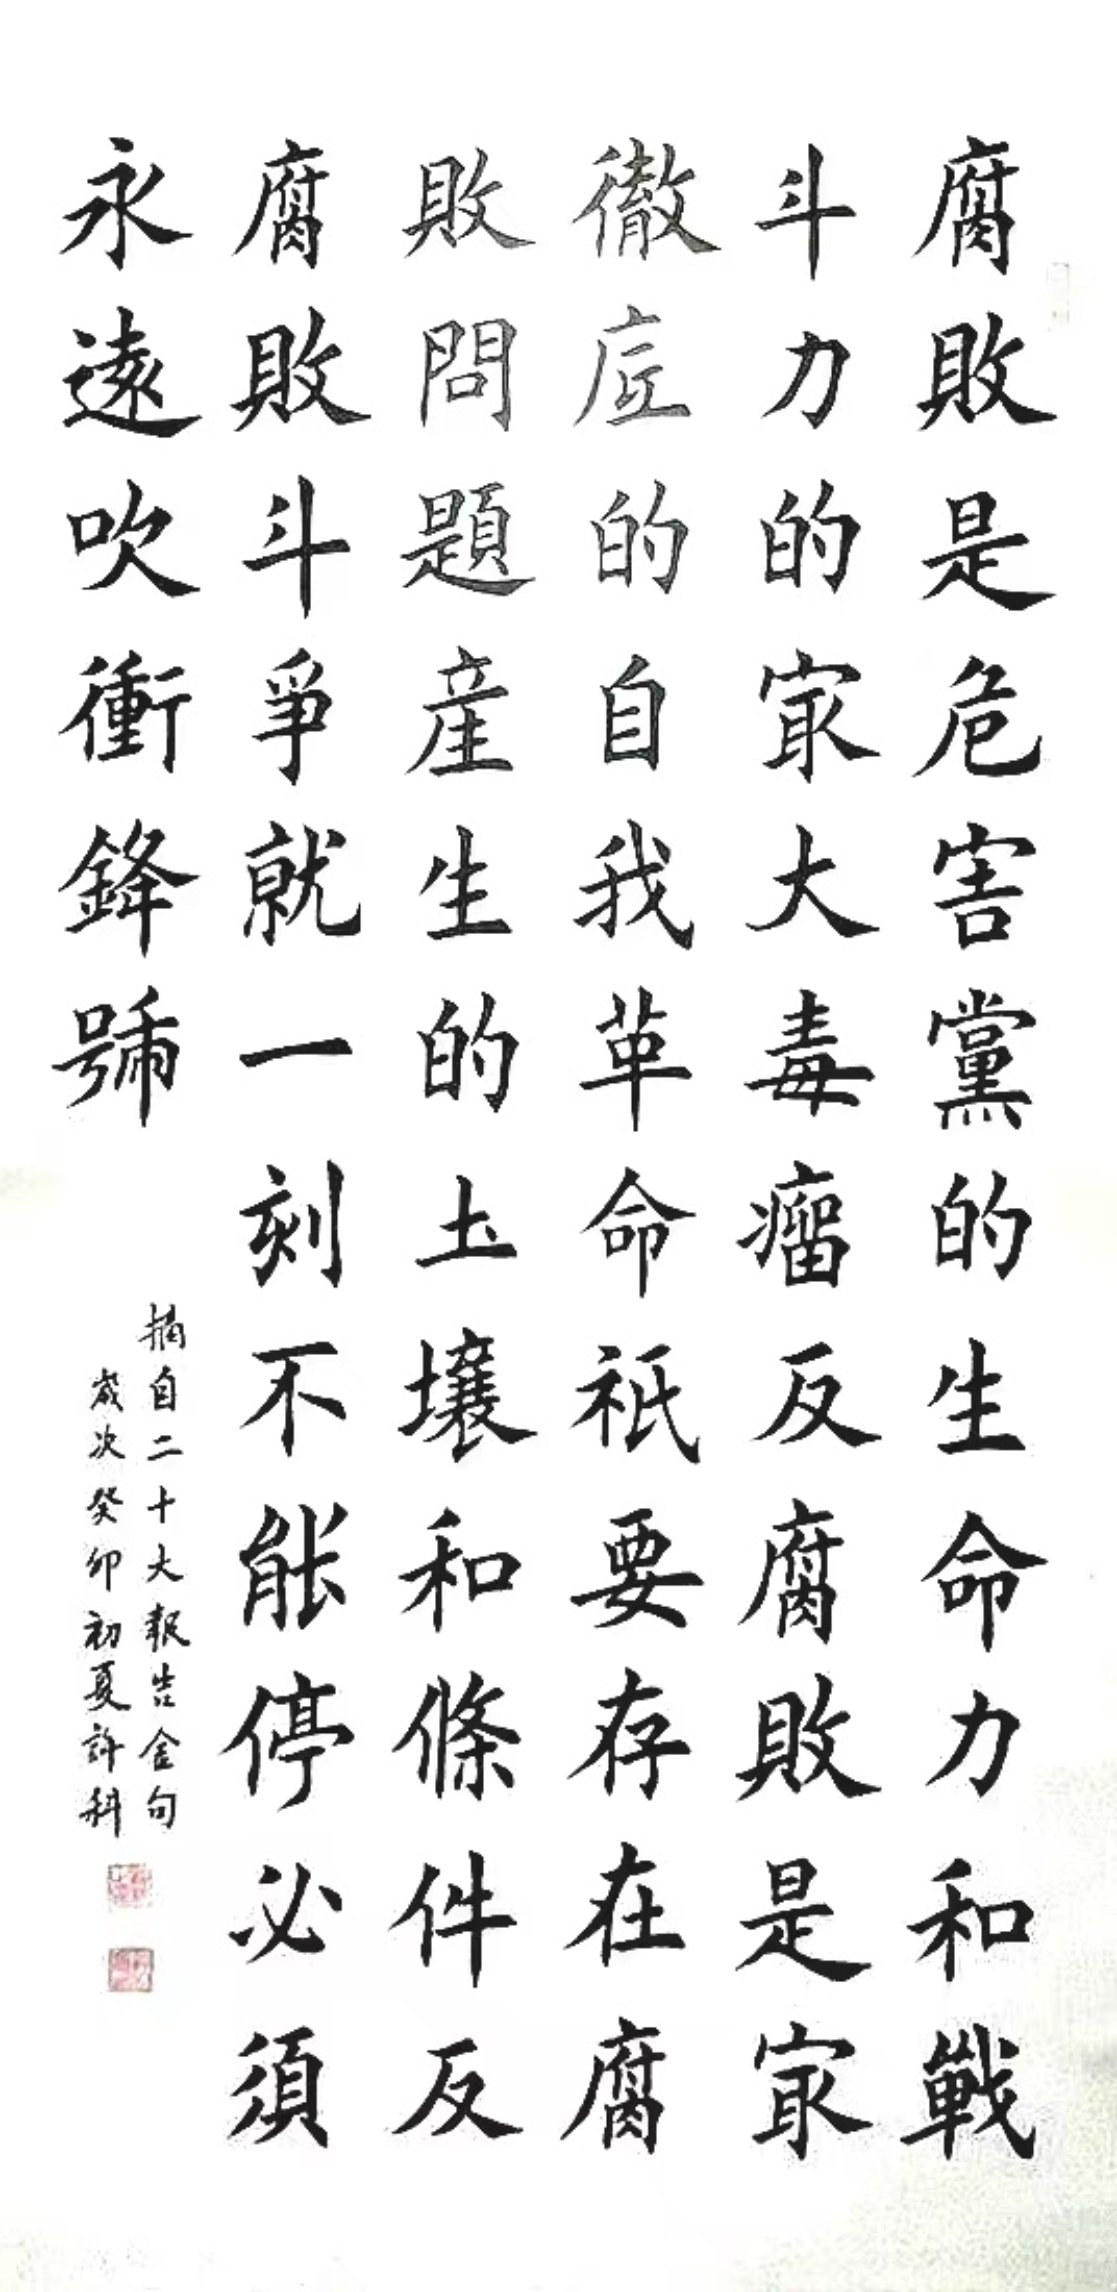 腐敗是危害黨的生命力和戰
斗力的冣大毒瘤反腐敗是冣
徹底的自我革命祇要存在腐
敗問題産生的土壤和條件反
腐敗斗爭就一刻不能停必須
永遠吹衝鋒號
摘自二十大報告金句
歲次癸卯初夏許科